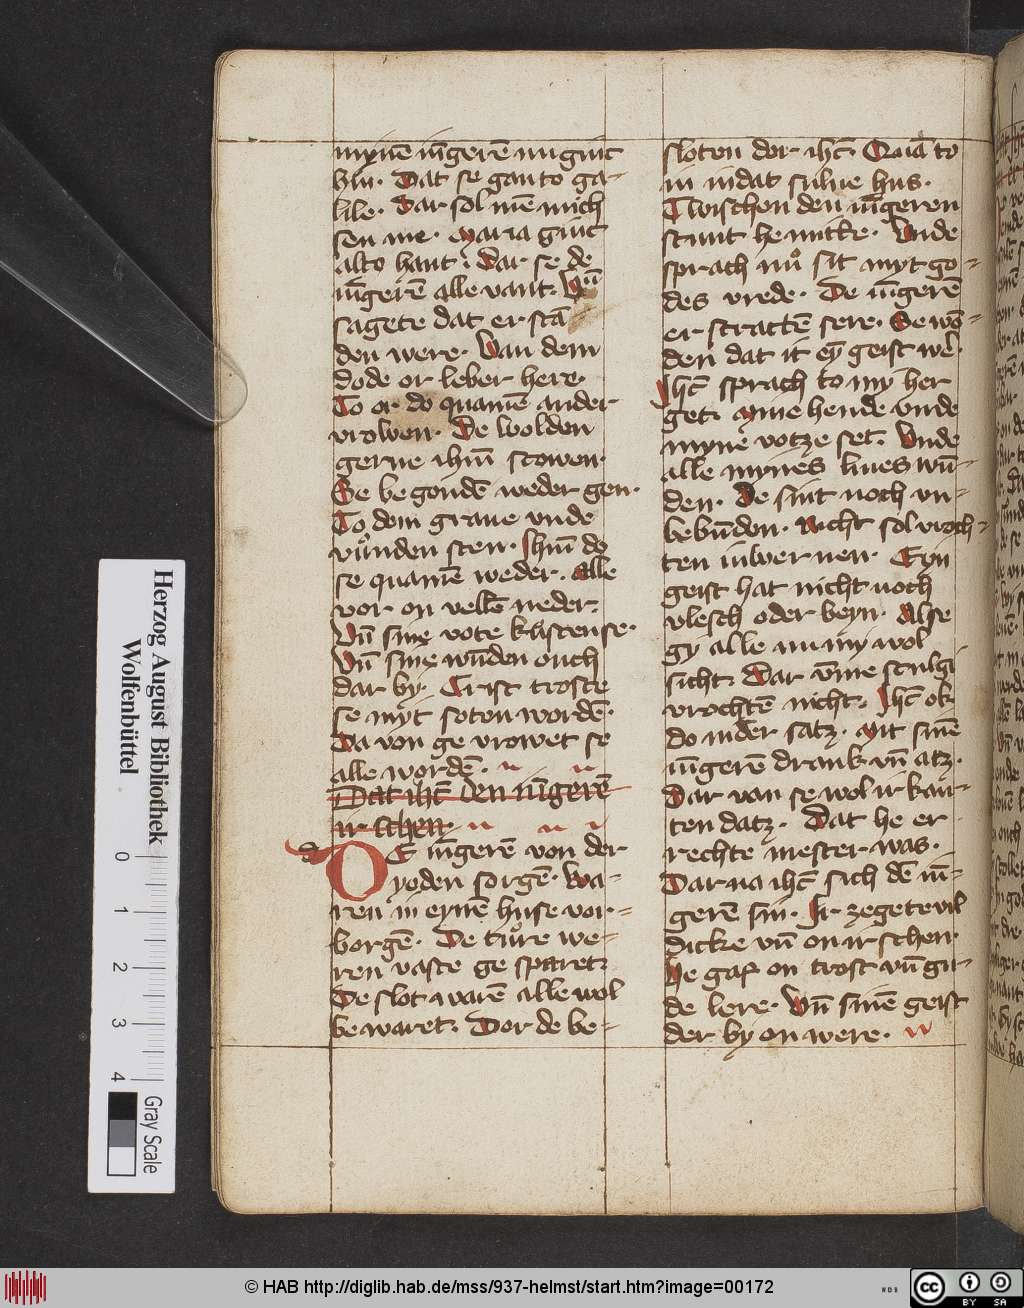 mynē iūgerē nu guit
hin. Dat se gan to ga-
lile. Dar sol mē mich
sen me. Maria guit
alto hant. Dar se de
iūgerē alle vant. Vn̄
sagete dat er stā
den were. Van dem
dode or leber here.
To or do quamē ander
vrowen. De wolden
gerne ihm̄ scowen.
Se be gondē weder gen.
To dem graue vnde
vůnden sten. Ihm̄ do
se quamē weder. Alle
vor on vellē neder.
Vn̄ sine vote kůstense.
Vn̄ sine wūden ouch
dar by. Crist troste
se myt soten wordē.
Da von ge vrowet se
alle wordē.
Dat ihc̄ den iūgerē
ir schen.
d
DE iūgerē von der
yoden sorgē. Wa-
ren in eynē huse vor-
borgē. De tůre we-
ren vaste ge sparet.
De slot warē alle wol
be waret. Dor de be-
sloten dor ihc̄. Quā to
in in dat sulue hus.
Twischen den iūgeren
stunt he mitke. Vnde
sprach nů sit myt go-
des vrede. De iūgerē
er scrattē sere. Se wō-
den dat it ey̅ geist wē.
Ihc̄ sprach to my her
get. Mine hende vnde
myne votze set. Vnde
alle mynes liues wū-
den. De sint noch vn-
bebūden. Nicht sol vroch-
ten iuwer nen. Eyn
geist hat nicht noch
vlesch oder beyn. Alse
gy alle nu my wol
sicht. Dar vm̄e sculgi
vrochtē nicht. Ihc̄ ok
do nider satz. Mit sinē
iūgerē drank vn̄ atz.
Dar van se wol ir kan-
ten datz. Dat he er
rechte mester was.
Dar na ihc̄ sich dē iū-
gerē sin. Ir zegete vil
dicke vn̄ on ir schen.
He gaf on trost vn̄ gu-
de lere. Vn̄ sinē geist
der by on were.
Herzog August Bibliothek
Wolfenbüttel
0
1
2
3
4
Gray Scale
© HAB http://diglib.hab.de/mss/937-helmst/start.htm?image=00172
WDB
cc
BY SA